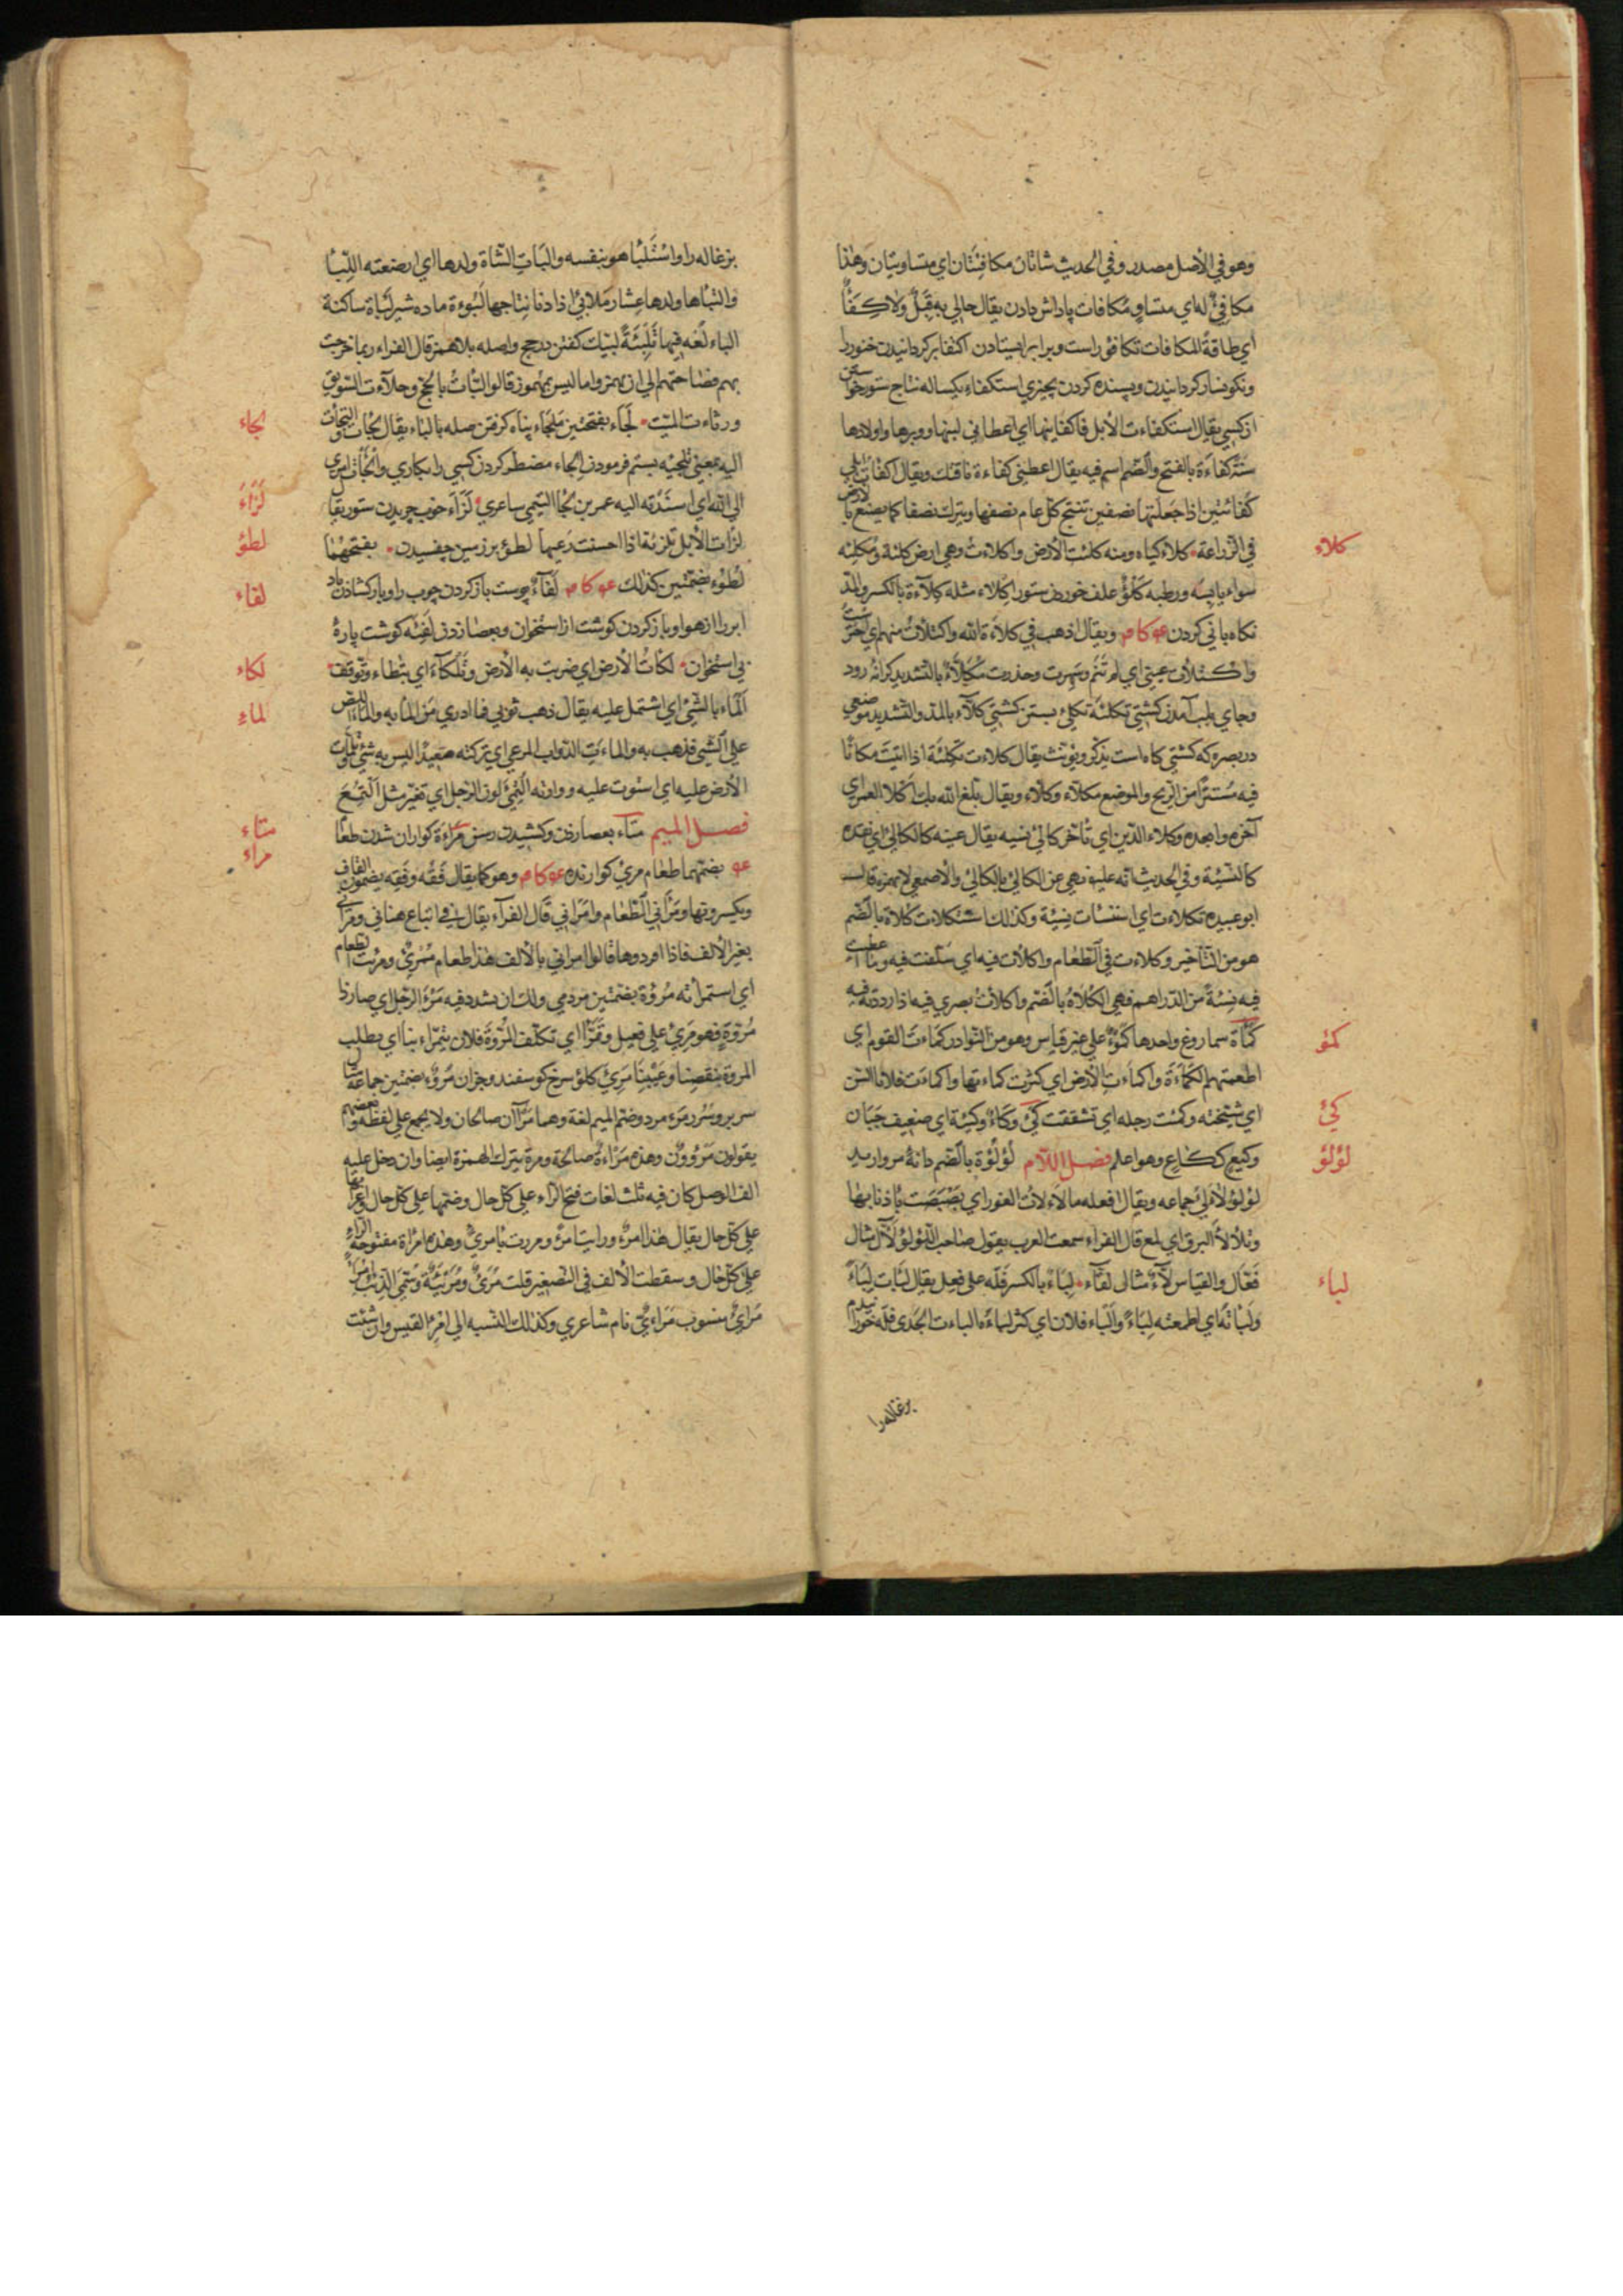 وهو في الأصل مصدر وفي الحديث شاتان مكافئتان اي متساويتان وهذا
مكافئ له اي متساو مكافات پاداش دادن يقال مالي به قبل ولا كفأ
اي طاقة المكافات تكافؤ راست وبرابر ايستادن اكفا بر كردانيدن خنور را
ونكونسار كردانيدن وپسنده كردن بچيزي استكفاء يكساله نتاج ستور خواستن
از كسي يقال استكفاءت الأبل فاكفانيها اي اعطاني لبنها ووبرها واولادها
سنة كفاءة بالفتح والضم اسم فيه يقال اعطني كفاءة ناقتك ويقال اكفأت ابلي
كفأتين اذا جعلتها نصفين تنتج كل عام نصفها ويترك نصفا كما يصنع بالأرض
في الزراعة كلاء گياه ومنه كلئت الأرض واكلاءت وهي ارض كلئة ومكلئه
كلاء
سواء يابسه ورطبه كلؤ علف خوردن ستور اكلاء مثله كلاءة بالكسر والمد
نكاه باني كردن عو كام ويقال اذهب في كلاءة الله واكتلأت منهم اي احترست
واكتلأت عيني اي لم تنم وسهرت وحذرت مكلأ بالتشديد كرانه رود
وجاي بلب آمدن كشتي تكلئة تكلئ بستن كشتي كلآء بالمد والتشديد موضعي
در بصره كه كشتي كاه است يذكر ويؤنث يقال كلاءت تكلئة اذا اتيت مكانا
فيه مستترا من الريح والموضع مكلآء وكلآء ويقال بلغ الله بك اكلأ العمر اي
آخره وابعده وكلاء الدين اي تأخر كالئ نسيه يقال عينه كالكالئ اي نقده
كالنسيئة وفي الحديث انه عليه نهي عن الكالئ بالكالئ والأصمعي لا يهمزه قال
ابو عبيده تكلاءت اي استنسات نسيئة وكذلك استكلاءت كلاءة بالضم
هو من التأخير وكلاءت في الطعام واكلأت فيه اي سلفت فيه وما اعطيت
فيه نسئة من الدراهم فهي الكلاءة بالضم واكلأت بصري فيه اذا رددته فيه
كمأة سماروغ واحدها كمؤ علي غير قياس وهو من النوادر كماءت القوم اي
كمؤ
اطعمتهم الكماءة واكماءت الأرض اي كثرت كماءتها واكماءت فلانا السن
اي شيخته وكمئت رجله اي تشققت كئ وكاء وكيئة اي ضعيف جبان
كئ
وكيع ككاع وهو اعلم فصل اللام لؤلؤة بالضم دانه مرواريد
لؤلؤ
لؤلؤ لآلئ جماعه ويقال لا افعله ما لاءلأت الفور اي بصبصت باذنابها
وتلألأ البرق اي لمع قال الفراء سمعت العرب يقول صاحب اللؤلؤ لآل مثال
فعال والقياس لآء مثال لعاء لباء بالكسر فله علي فعل يقال لبأت لباء
لباء
ولبأته اي اطعمته لباء والباء فلان اي كثر لباءه الباءت الجدي فله خورانيدم
بزغاله را
بزغاله را واستلبأها هو بنفسه والبات الشاة ولدها اي ارضعته اللبأ
والتبأها ولدها عشار ملابئ اذا دنا نتاجها لبوءة ماده شير لبأة ساكنة
الباء لغه فيها تلبئة لبيك كفتن در حج واصله بلا همز قال الفراء ربما خرجت
بهم فصاحتهم الي ان يهمزوا ما ليس بمهموز قالوا لبأت بالحج وحلاءت السويق
ورثاءت الميت لجاء بفتحتين ملجاء پناه كرفتن صله بالباء يقال لجأت والتجأت
لجاء
اليه بمعني تلجيه بستم فرمودن الجاء مضطر كردن كسي را بكاري والجأت امري
الي الله اي اسندته اليه عمر بن لجأ التيمي شاعري لزاء خوب چريدن ستور يقال
لزاء
لزات الأبل تلزئة اذا احسنت رعيها لطؤ بر زمين چفسيدن بفتحهما
لطؤ
لطوء بضمتين كذلك عو كام لفاء پوست باز كردن چوب را وباز كشادن باد
لفاء
ابر را از هوا وباز كردن كوشت از استخوان وبعصا زدن لفئه كوشت پاره
بي استخوان لكأت الأرض اي ضربت به الأرض وتلكاء اي بتطاء وتوقف
لكاء
الماء بالشئ اي اشتمل عليه يقال ذهب ثوبي فما ادري من الماء به والماء اللص
لماء
علي الشي فذهب به والماءت الدواب المرعي اي تركته صعيدا ليس به شئ تلمأت
الأرض عليه اي استوت عليه ووارته التمئ لون الرجل اي تغير مثل التمع
فصل الميم متاء بعصا زدن وكشيدن رسن مراءة كواران شدن طعام
متاء
مراء
عو بضمهما طعام مرئ كوارنده عو كام وهو كما يقال فقه وفقه بضمون القاف
ويكسرونها ومرأني الطعام وامرأني قال الفراء يقال في اتباع هنأني ومرأني
بغير الألف فاذا افردوها قالوا امرأني بالألف هذا طعام ممرئ ومرئت الطعام
اي استمرأته مروة بضمتين مردمي ولك ان يشدد فيه مرؤ الرجل اي صار ذا
مروة فهو مرئ علي فعيل وتمرأ اي تكلف المروة فلان يتمراء بنا اي يطلب
المروة بنقصنا وعيبنا مرئ كلو سرخ كوسفند وجز ان مرؤ بضمتين جماعة مثال
سرير وسرر مرء مرد وضم الميم لغة وهما مرآن صالحان ولا يجمع علي لفظه وبعضهم
يقولون مرؤون وهذه مرءة صالحة ومرة بترك الهمزة ايضا وان دخل عليه
الف الوصل كان فيه ثلث لغات فتح الراء علي كل حال وضمها علي كل حال واعرابها
علي كل حال يقال هذا امرؤ ورايت امرأ ومررت بامرئ وهذه امرأة مفتوحة الراء
علي كل حال وسقطت الألف في التصغير قلت مرئ ومريئة وسمي الذئب امرأ
مرائ منسوب مراءي نام شاعري وكذلك النسبه الي امرئ القيس وان شئت